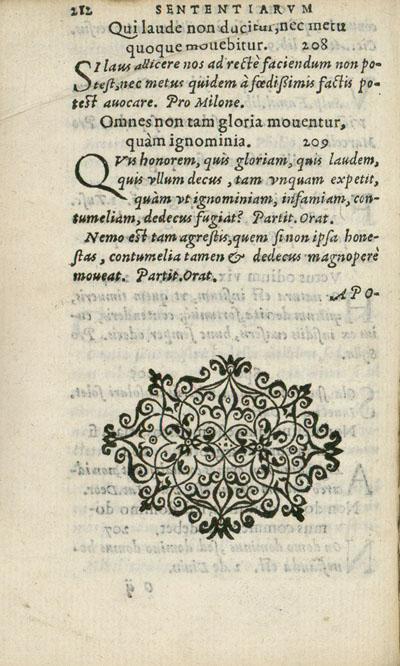 212 SENTENTIARVM
Qui laude non ducitur, nec metu
quoque mouebitur. 208
SI laus allicere nos ad rectè faciendum non po-
test, nec metus quidem à fœdißimis factis po-
test auocare. Pro Milone.
Omnes non tam gloria mouentur,
quàm ignominia. 209
QVis honorem, quis gloriam, quis laudem,
quis vllum decus, tam vnquam expetit,
quàm vt ignominiam, infamiam, con-
tumeliam, dedecus fugiat? Partit. Orat.
Nemo est tam agrestis, quem si non ipsa hone-
stas, contumelia tamen & dedecus magnoperè
moueat. Partit. Orat.
APO-